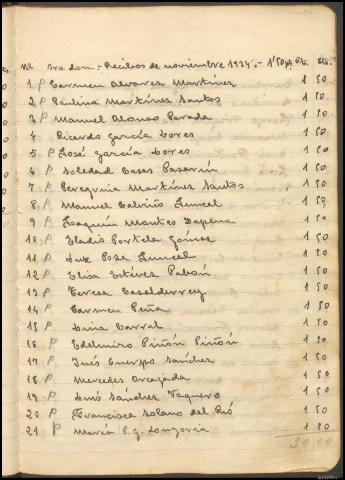 Nº Srs don.- Recibos de noviembre 1934.- 1'50 pts Pts. Cts.
1 P Carmen Alvarez Martínez 1 50
2 P Paulina Martínez Santos 1 50
3 P Manuel Alonso Parada 1 50
4 Ricardo García Lores 1 50
5 P José García Lores 1 50
6 P Soledad Casas Pasarín 1 50
7 P Peregrina Martínez Santos 1 50
8 P Manuel Calviño Juncal 1 50
9 P Joaquín Montes Dapena 1 50
10 P Eladio Portela Gómez 1 50
11 P Luz Poza Juncal 1 50
12 P Elisa Estévez Pabón 1 50
13 P Teresa Casalderrey 1 50
14 P Carmen Peña 1 50
15 P Luisa Corral 1 50
16 P Edelmiro Piñón Piñón 1 50
17 P Inés Sánchez 1 50
18 P Mercedes Orcajada 1 50
19 P Sánchez Vaquero 1 50
20 P Francisca Solano del Río 1 50
21 P María P. G. Longoria 1 50
30 00